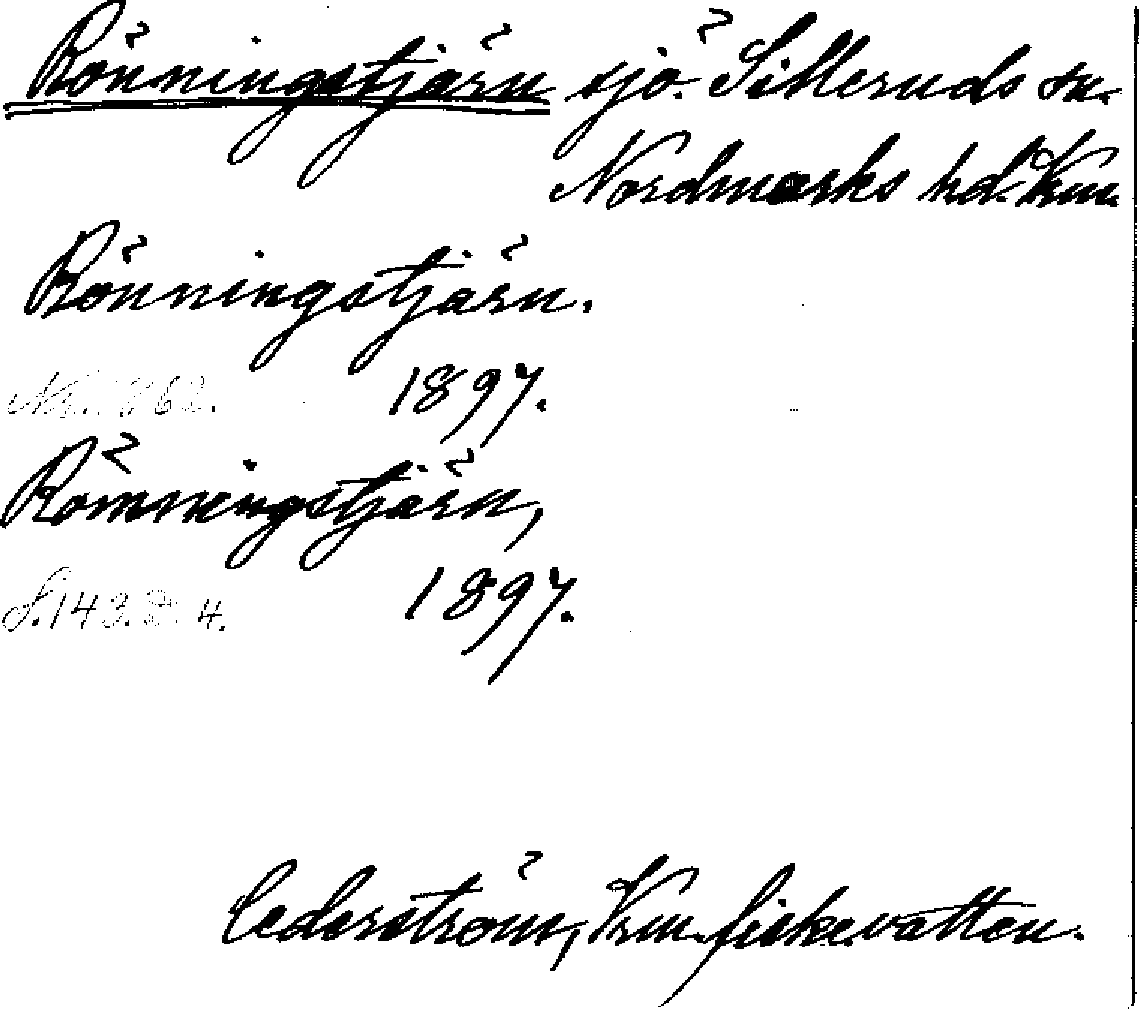 Rönningstjärn sjö. Silleruds sn.
Nordmarks hd. Vrm.
Rönningstjärn.
Nr. 862. 1897.
Römningstjärn,
S. 143. 2: 4. 1897.
Cederström, Vrm. fiskevatten.